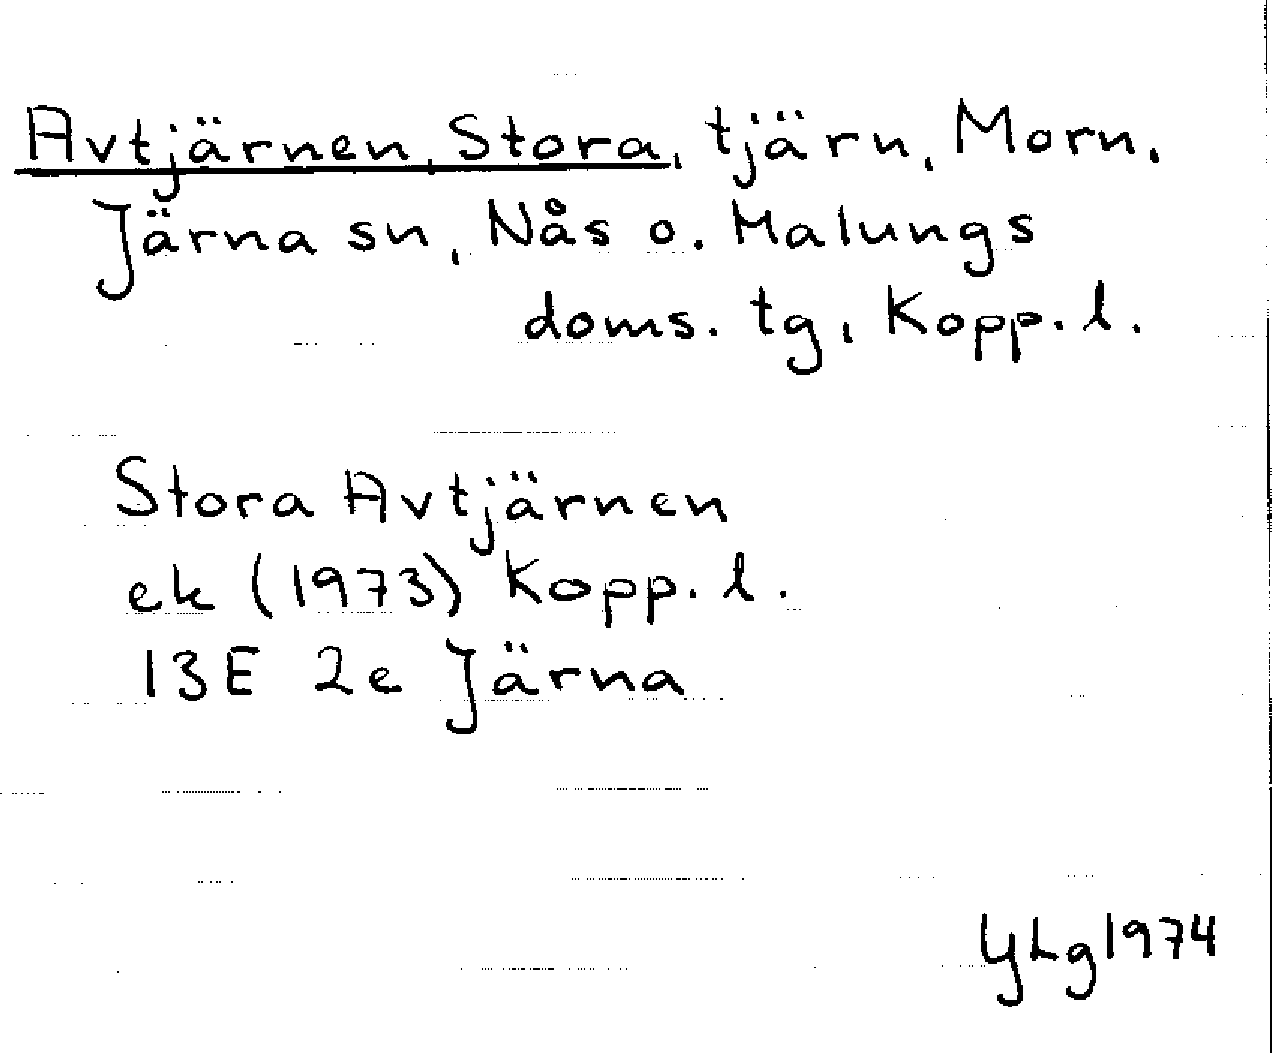 Avtjärnen, Stora, tjärn, Morn,
Järna sn, Nås o. Malungs
doms. tg, Kopp. l.
Stora Avtjärnen
ek (1973) Kopp. l.
13E 2e Järna
YLg 1974